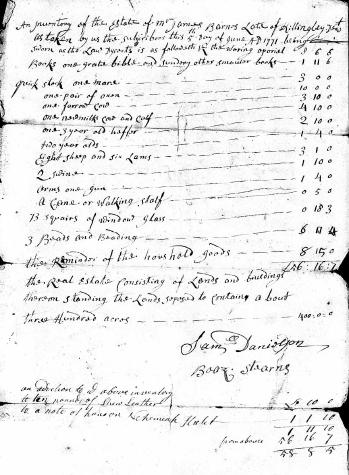 An inventory of the Estate of Mr James Barns Late of Killingley Decd
as taken by us the subscribers this 5th Day of June AD 1771 being
sworn as the Law Directs is as followeth £ the waring aporiel 9 6 6
Books one grate bible and sundrey other smaller books 1 11 6
quick stock one mare 3 0 0
one pair of oxen 10 0 0
one farrow Cow 3 10 0
one newmilks Cow and Calf 4 10 0
one 3 year old heffer 2 10 0
two year olds 1 4 0
Eight sheep and six Lams 3 1 0
2 swine 1 10 0
Arms one gun 1 4 0
A Cane or Walking staff 0 5 0
73 squairs of Window Glass 0 18 3
3 Beads and Beading 6 11 4
the Remindor of the houshold goods 8 15 0
£56:16:7
the Real Estate Consisting of Lands and buildings
thereon standing the Lands soposed to Containg a bout
three Hundred acres 400.0.0
Saml Danielson
Boaz Stearns
an adection to ye above inventory £ 10 0
to ten pounds of Shew Leather 1 1 10
to a note of hand on Nehemiah 1 11 10
from above 56 16 7
58 8 5